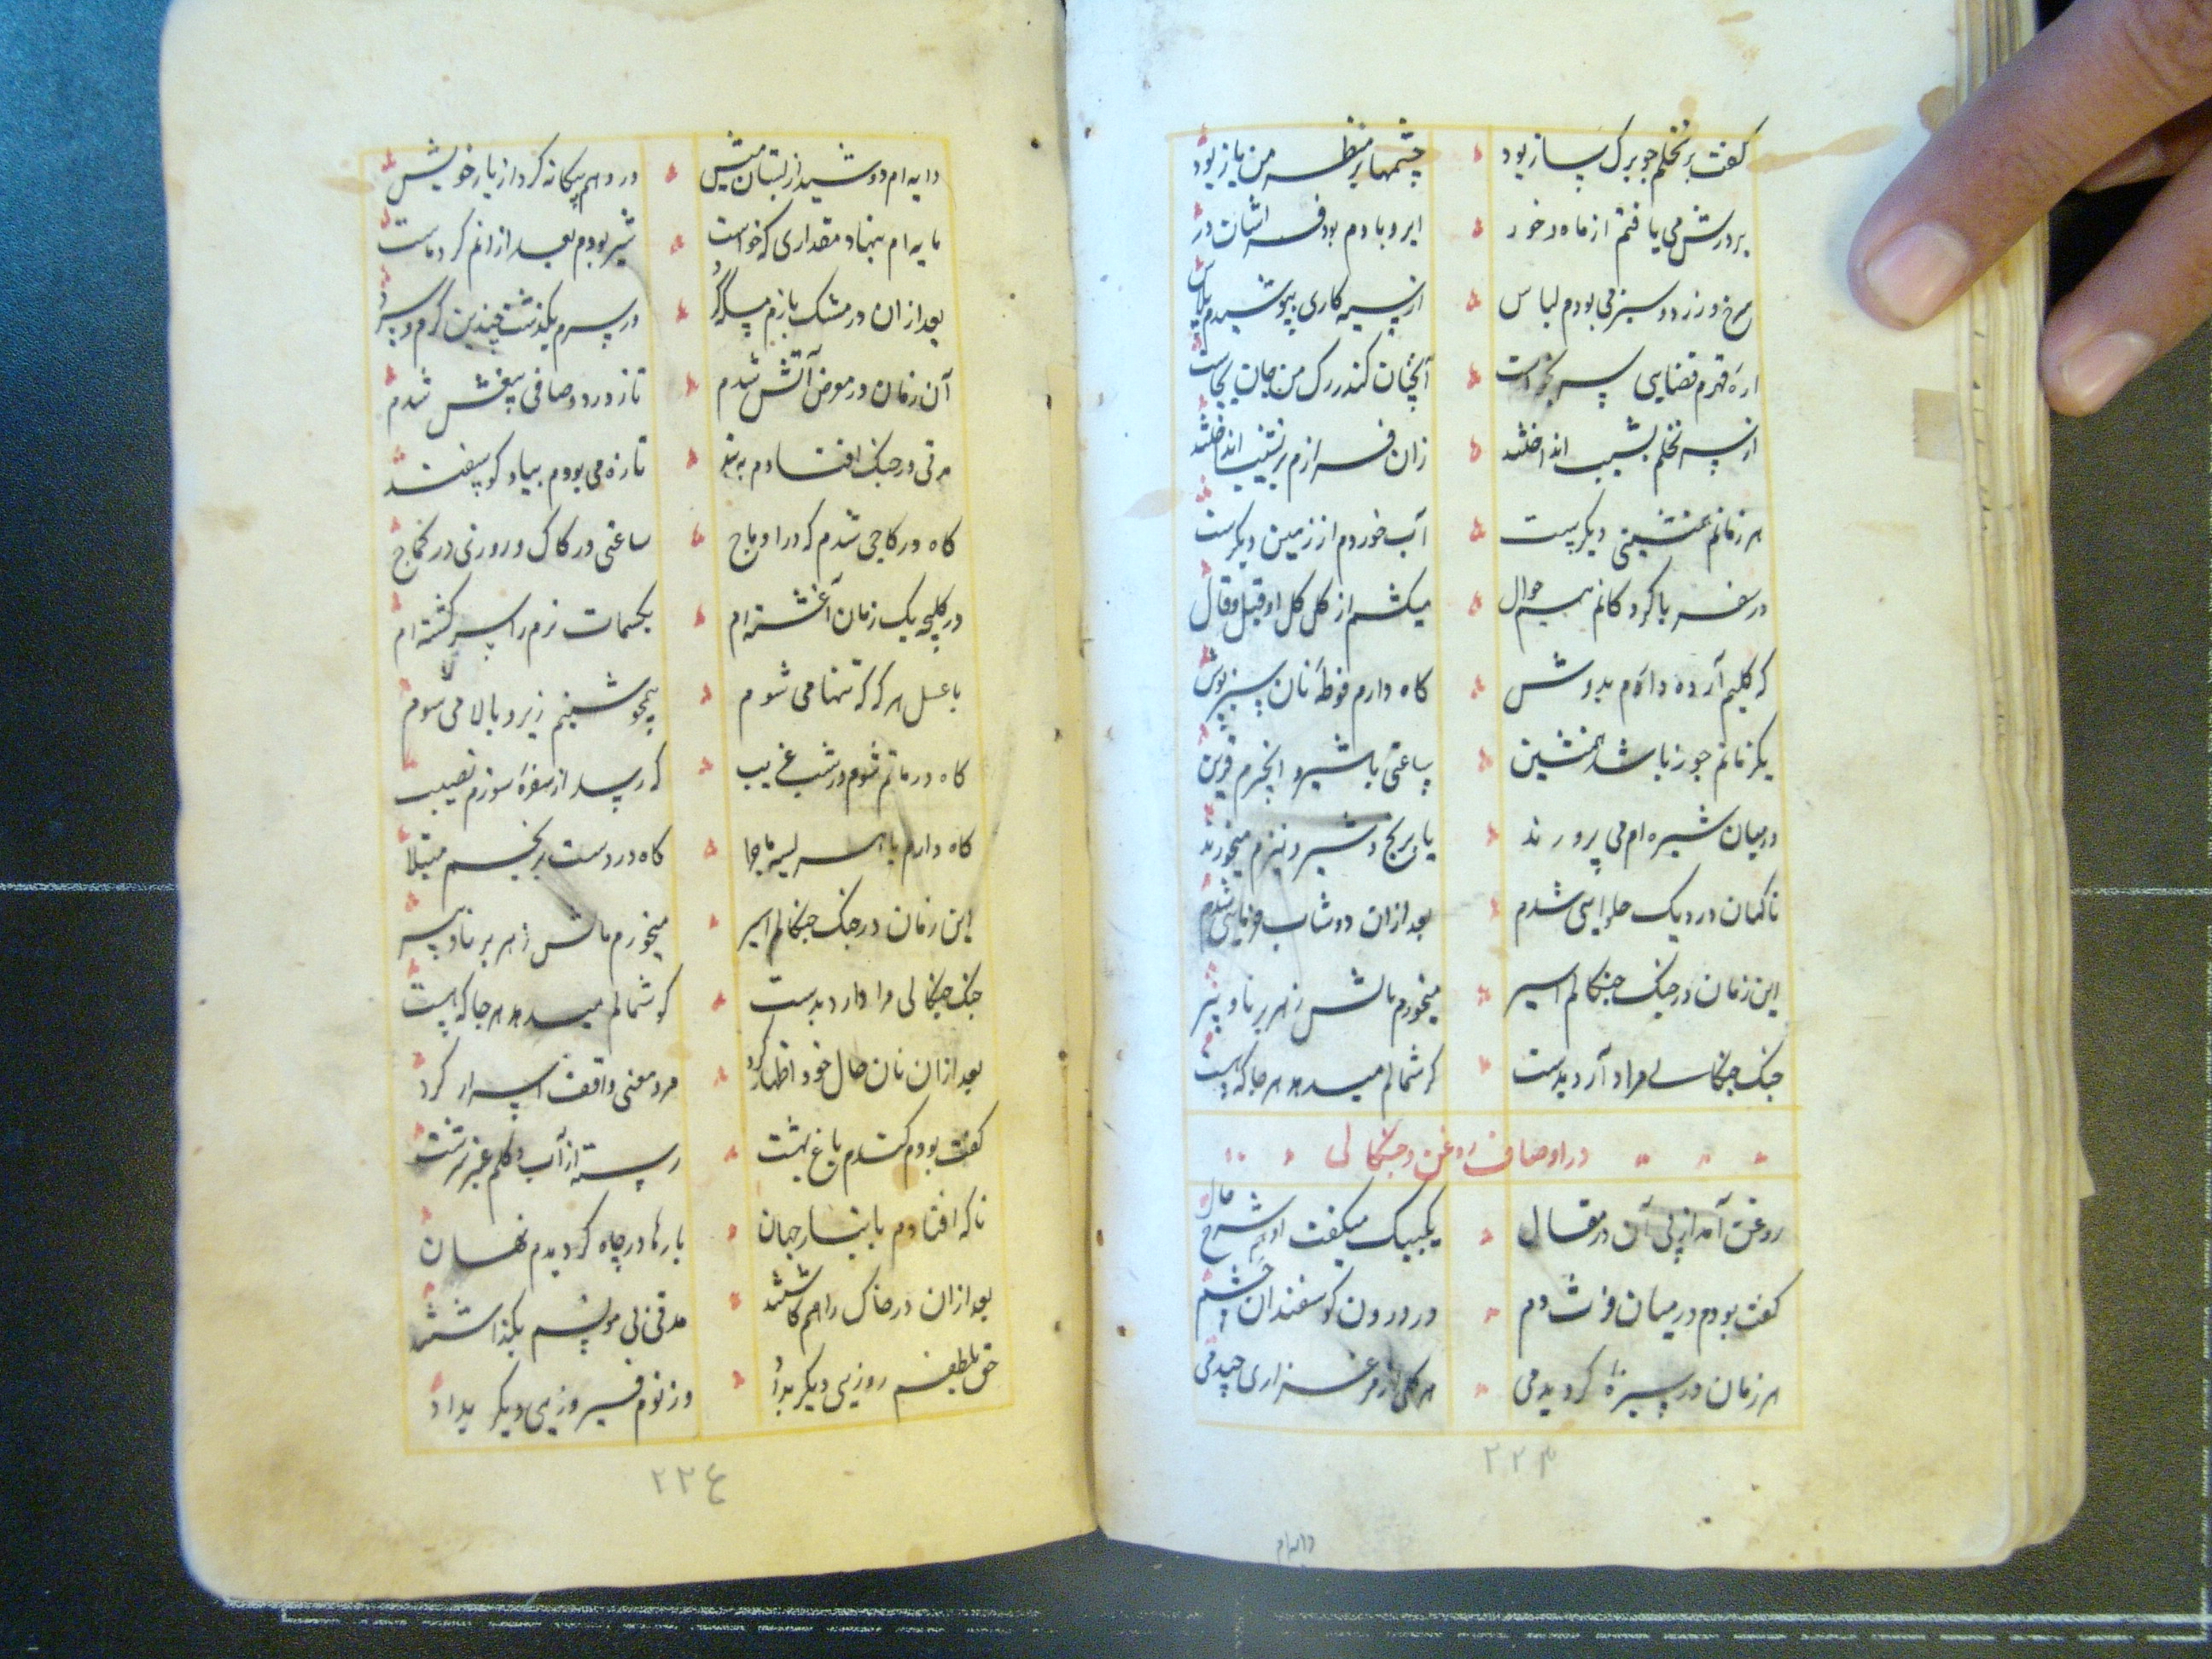 کفت بر نخلم جو برک ساز بود چشمها بر منظر من باز بود
پرورش می یافتم از ماه و خور ابر و بادم بود فراشان در
سرخ و زرد و سبز می بودم لباس از سیه کاری بپوشیدم پلاس
اره قهرم قضایی سر بخواست آنچنان کند رک من جان بجاست
از سر نخلم بشیب انداختند زان فرازم بر نشیب انداختند
هر زمانم همنشینی دیکرست آب خوردم از زمین دیکرست
در سفر با کردکانم هم جوال میکشم از کل کل او قیل و قال
که کلیم آرده دارم بدوش کاه دارم فوطه نان سبز پوش
یکزمانم جوز باشد همنشین ساعتی با شیر و انجیرم قرین
درمیان شیره ام می پرورند با برنج و شیر و نیزم میخورند
ناکهان در دیک حلوایی شدم بعد ازان دوشاب خرمایی شدم
این زمان در جنک جنکالم اسیر میخورم مالش ز هر برنا و پیر
جنک جنکالی مرا دارد بدست کوشمالم میدهد هر جا که هست
در اوصاف روغن و جنکالی
روغن آمد از پی آن در مقال یکبیک میکفت او هم شرح حال
کفت بودم در میان فرث و دم در درون کوسفندان و چشم
هر زمان در سبزه کردیدمی هر کلی از مرغزاری چیدمی
۲۲۳
دایه ام
دایه ام دوشید از پستان میش در دهم بیکانه کرد از یار خویش
مایه ام بنهاد مقداری که خواست شیر بودم بعد ازانم کرد ماست
بعد ازان در مشک بازم سپرد در سرم بکذشت چندین کرم و سرد
آن زمان در معرض آتش شدم تا ز درد و صافی بیغش شدم
مدتی در خیک افتادم به بند تازه می بودم بیاد کوسفند
کاه در کاجی شدم که در اوماج ساعتی در کاک و روزی در کماج
در کلیچه یک زمان آغشته ام بکسمات نرم را سرکشته ام
با عسل هر که که تنها می شوم همچو شبنم زیر و بالا می شوم
کاه در ماتم شوم در شب غریب که رسد از سفره سوزم نصیب
کاه دارم با هریسه ماجرا کاه در دست برنجم مبتلا
این زمان در جنک جنکالم اسیر میخورم مالش ز هر برنا و پیر
جنک جنکالی مرا دارد بدست کوشمالم میدهد هر جا که هست
بعد ازان نان حال خود اظهار کرد مرد معنی واقف اسرار کرد
کفت بودم کندم باغ بهشت رسته از آب و کلم عنبر سرشت
ناکه افتادم بانبار جهان بارها در چاه کردیدم نهان
بعد ازان در خاک راهم کاشتند مدتی بی مونسم بکذاشتند
حق بلطفم روزیی دیکر بداد وز نوم فیروزیی دیکر بداد
۲۲۴